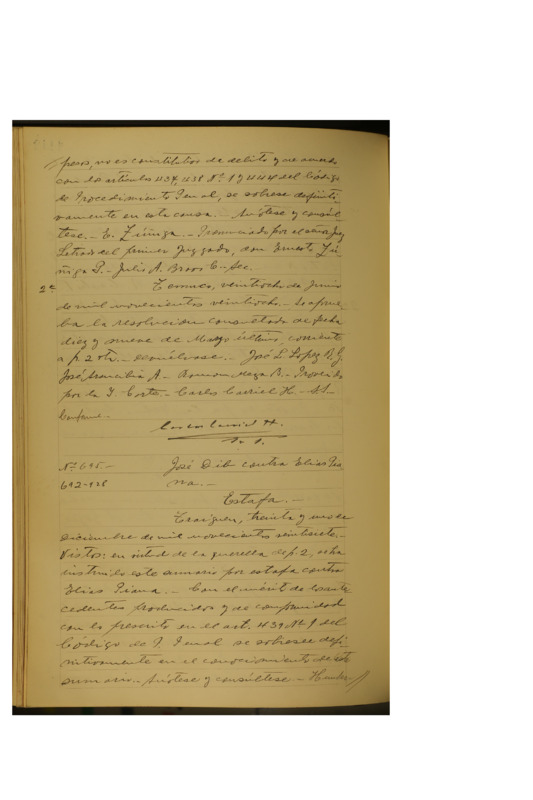 pesos, no es constitutivo de delito y de acuerdo
con los artículos 434, 438 Nº 1 y 444 del Código
de Procedimiento Penal, se sobresee definiti-
vamente en esta causa.- Anótese y consúl-
tese.- E. Zúñiga.- Pronunciado por el señor Juez
Letrado del primer Juzgado, don Ernesto Zú-
ñiga P.- Julio A. Bravo C.- Sec.
2ª Temuco, veintiocho de Junio
de mil novecientos veintiocho.- Se aprue-
ba la resolución consultada de fecha
diez y nueve de Mayo último, corriente
a f. 2 vta.- Devuélvase.- José L. López B.
José Arancibia A.- Roman Meza R.- Proveído
por la I. Corte.- Carlos Carriel H.- S.S.-
Conforme.-
Carlos Carriel H.
Nº 695.- José Dib contra Elias Pia-
692-928 na.-
Estafa.-
Traiguén, treinta y uno de
Diciembre de mil novecientos veintisiete.-
Vistos: en virtud de la querella de f. 2, se ha
instruido este sumario por estafa contra
Elias Piana.- Con el mérito de los ante-
cedentes producidos y de conformidad
con lo prescrito en el art. 439 Nº 1 del
Código de P. Penal se sobresee defi-
nitivamente en el conocimiento de este
sumario.- Anótese y consúltese.-